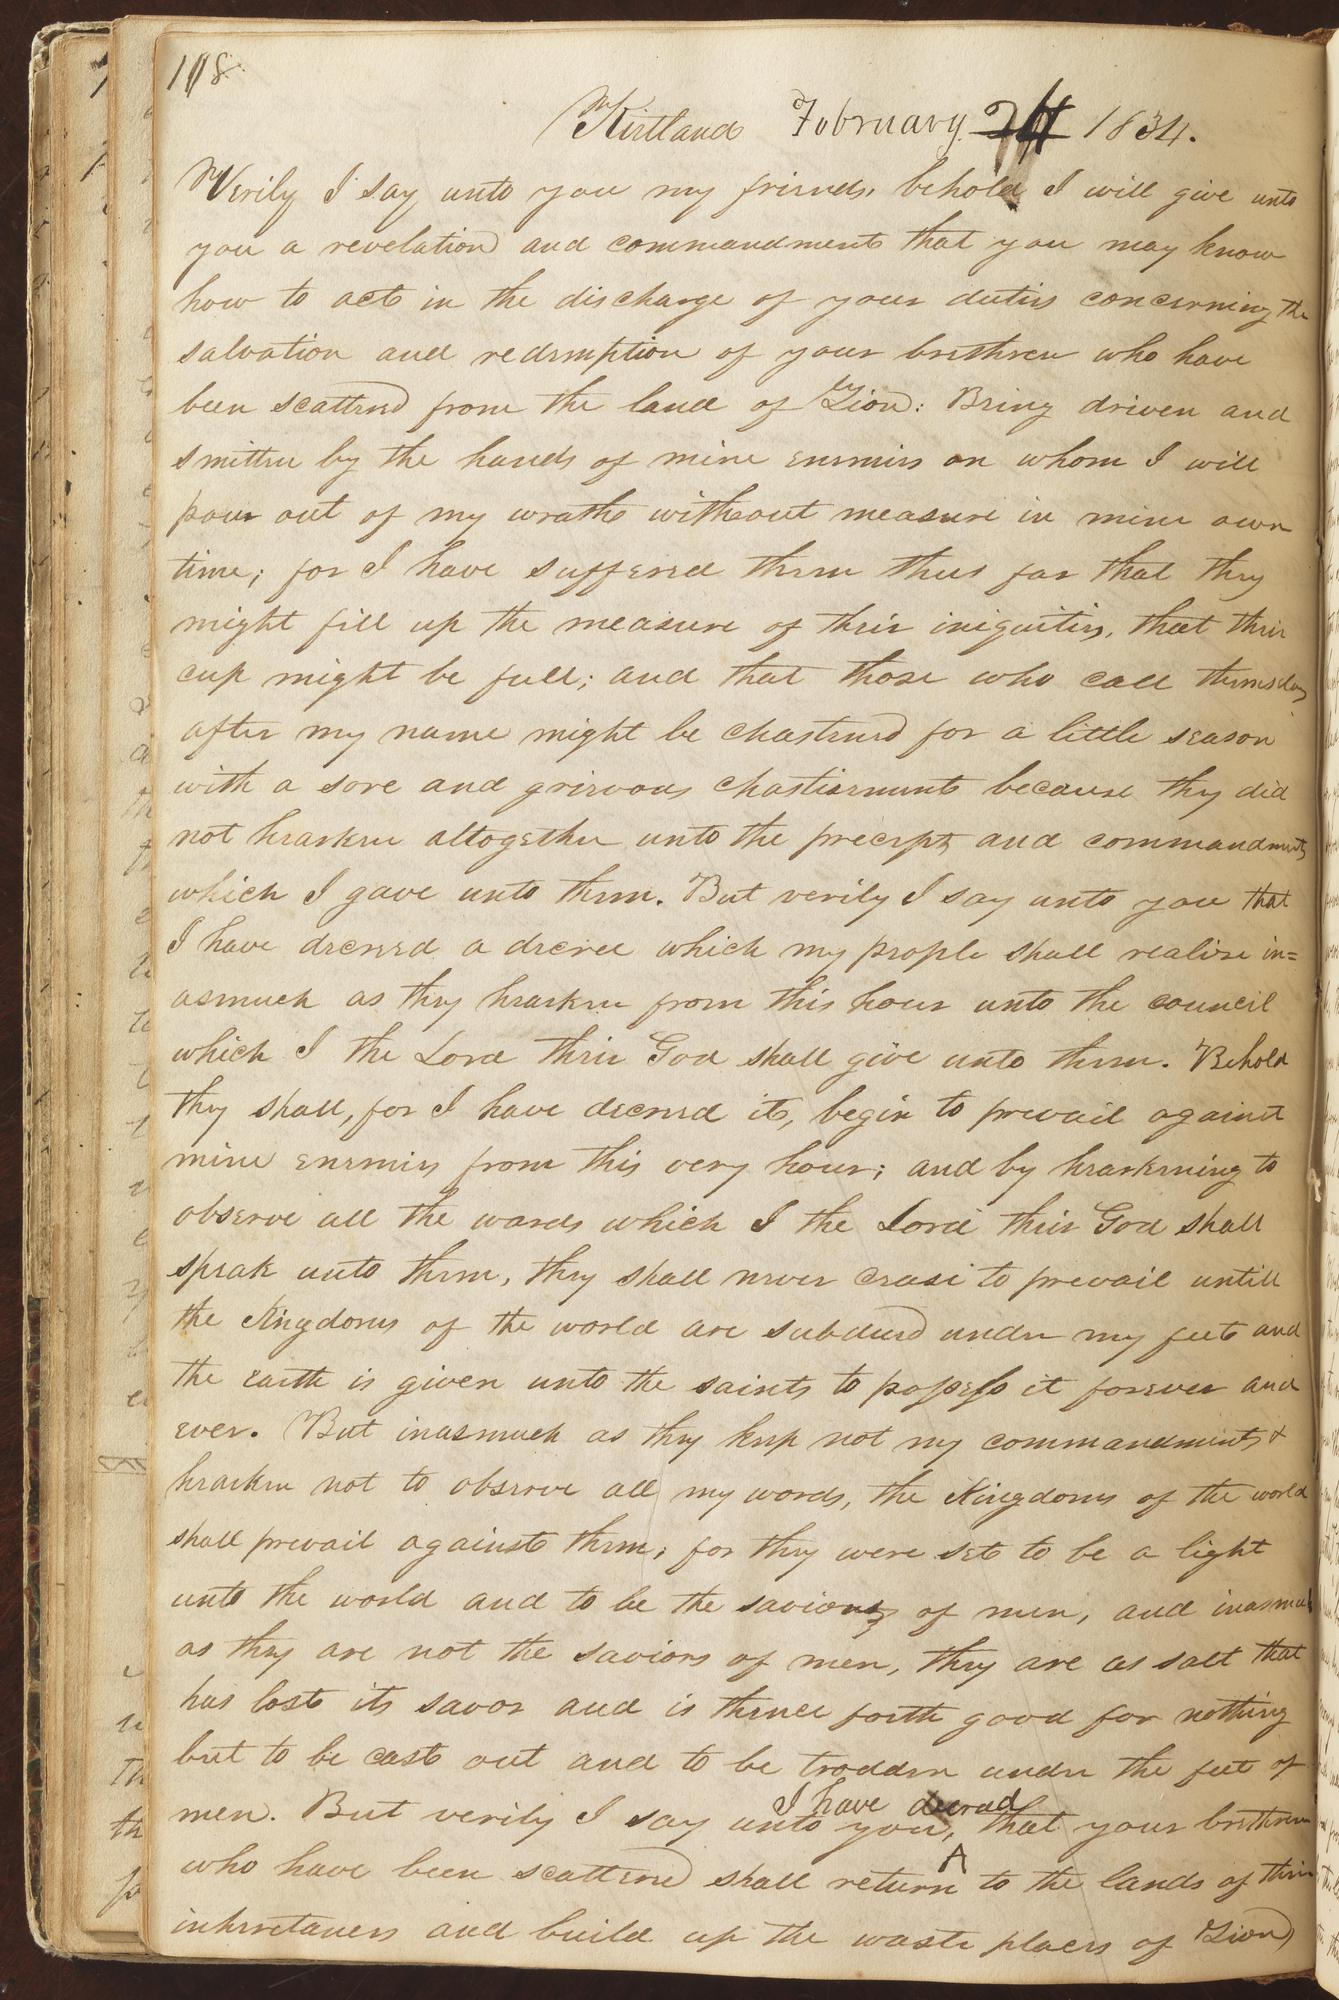 108
Kirtland February 24 1834.
Verily I say unto you my friends, behold I will give unto
you a revelation and commandment that you may know
how to act in the discharge of your duties concerning the
salvation and redemption of your brethren who have
been scattered from the land of Zion: Being driven and
smitten by the hands of mine enemies on whom I will
pour out of my wrath without measure in mine own
time; for I have suffered them thus far that they
might fill up the measure of their iniquities, that their
cup might be full; and that those who call themselves
after my name might be chastened for a little season
with a sore and grievous chastisement because they did
not hearken altogether unto the precepts and commandments
which I gave unto them. But verily I say unto you that
I have decreed a decree which my people shall realize in=
asmuch as they hearken from this hour unto the council
which I the Lord their God shall give unto them. Behold
they shall, for I have decreed it, begin to prevail against
mine enemies from this very hour; and by hearkening to
observe all the words which I the Lord their God shall
speak unto them, they shall never cease to prevail untill
the Kingdoms of the world are subdued under my feet and
the earth is given unto the saints to possess it forever and
ever. But inasmuch as they keep not my commandments &
hearken not to observe all my words, the Kingdoms of the world
shall prevail against them, for they were set to be a light
unto the world and to be the saviors of men, and inasmuch
as they are not the saviors of men, they are as salt that
has lost its savor and is thence forth good for nothing
but to be cast out and to be trodden under the feet of
I have decreed
men. But verily I say unto you, that your brethren
who have been scattered shall return to the lands of their
inheretances and build up the waste places of Zion